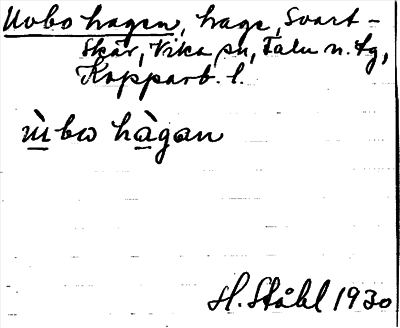 Uvbo hagen, hage, Svart-
skär, Vika sn, Falu n. tg,
Kopparb. l.
ùbω hàgan
H. Ståhl 1930